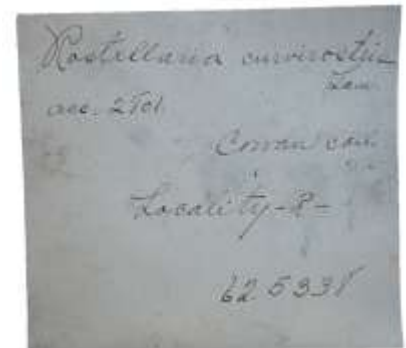 Rostellaria curvirostris
Lam.
acc. 2701
Cowan coll.
Locality - ? -
625338